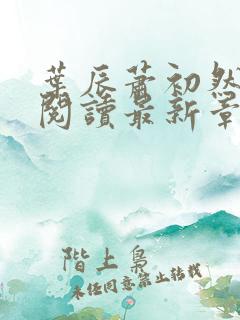 葉辰蕭初然
閱讀最新章
階上梟
未經同意禁止轉載